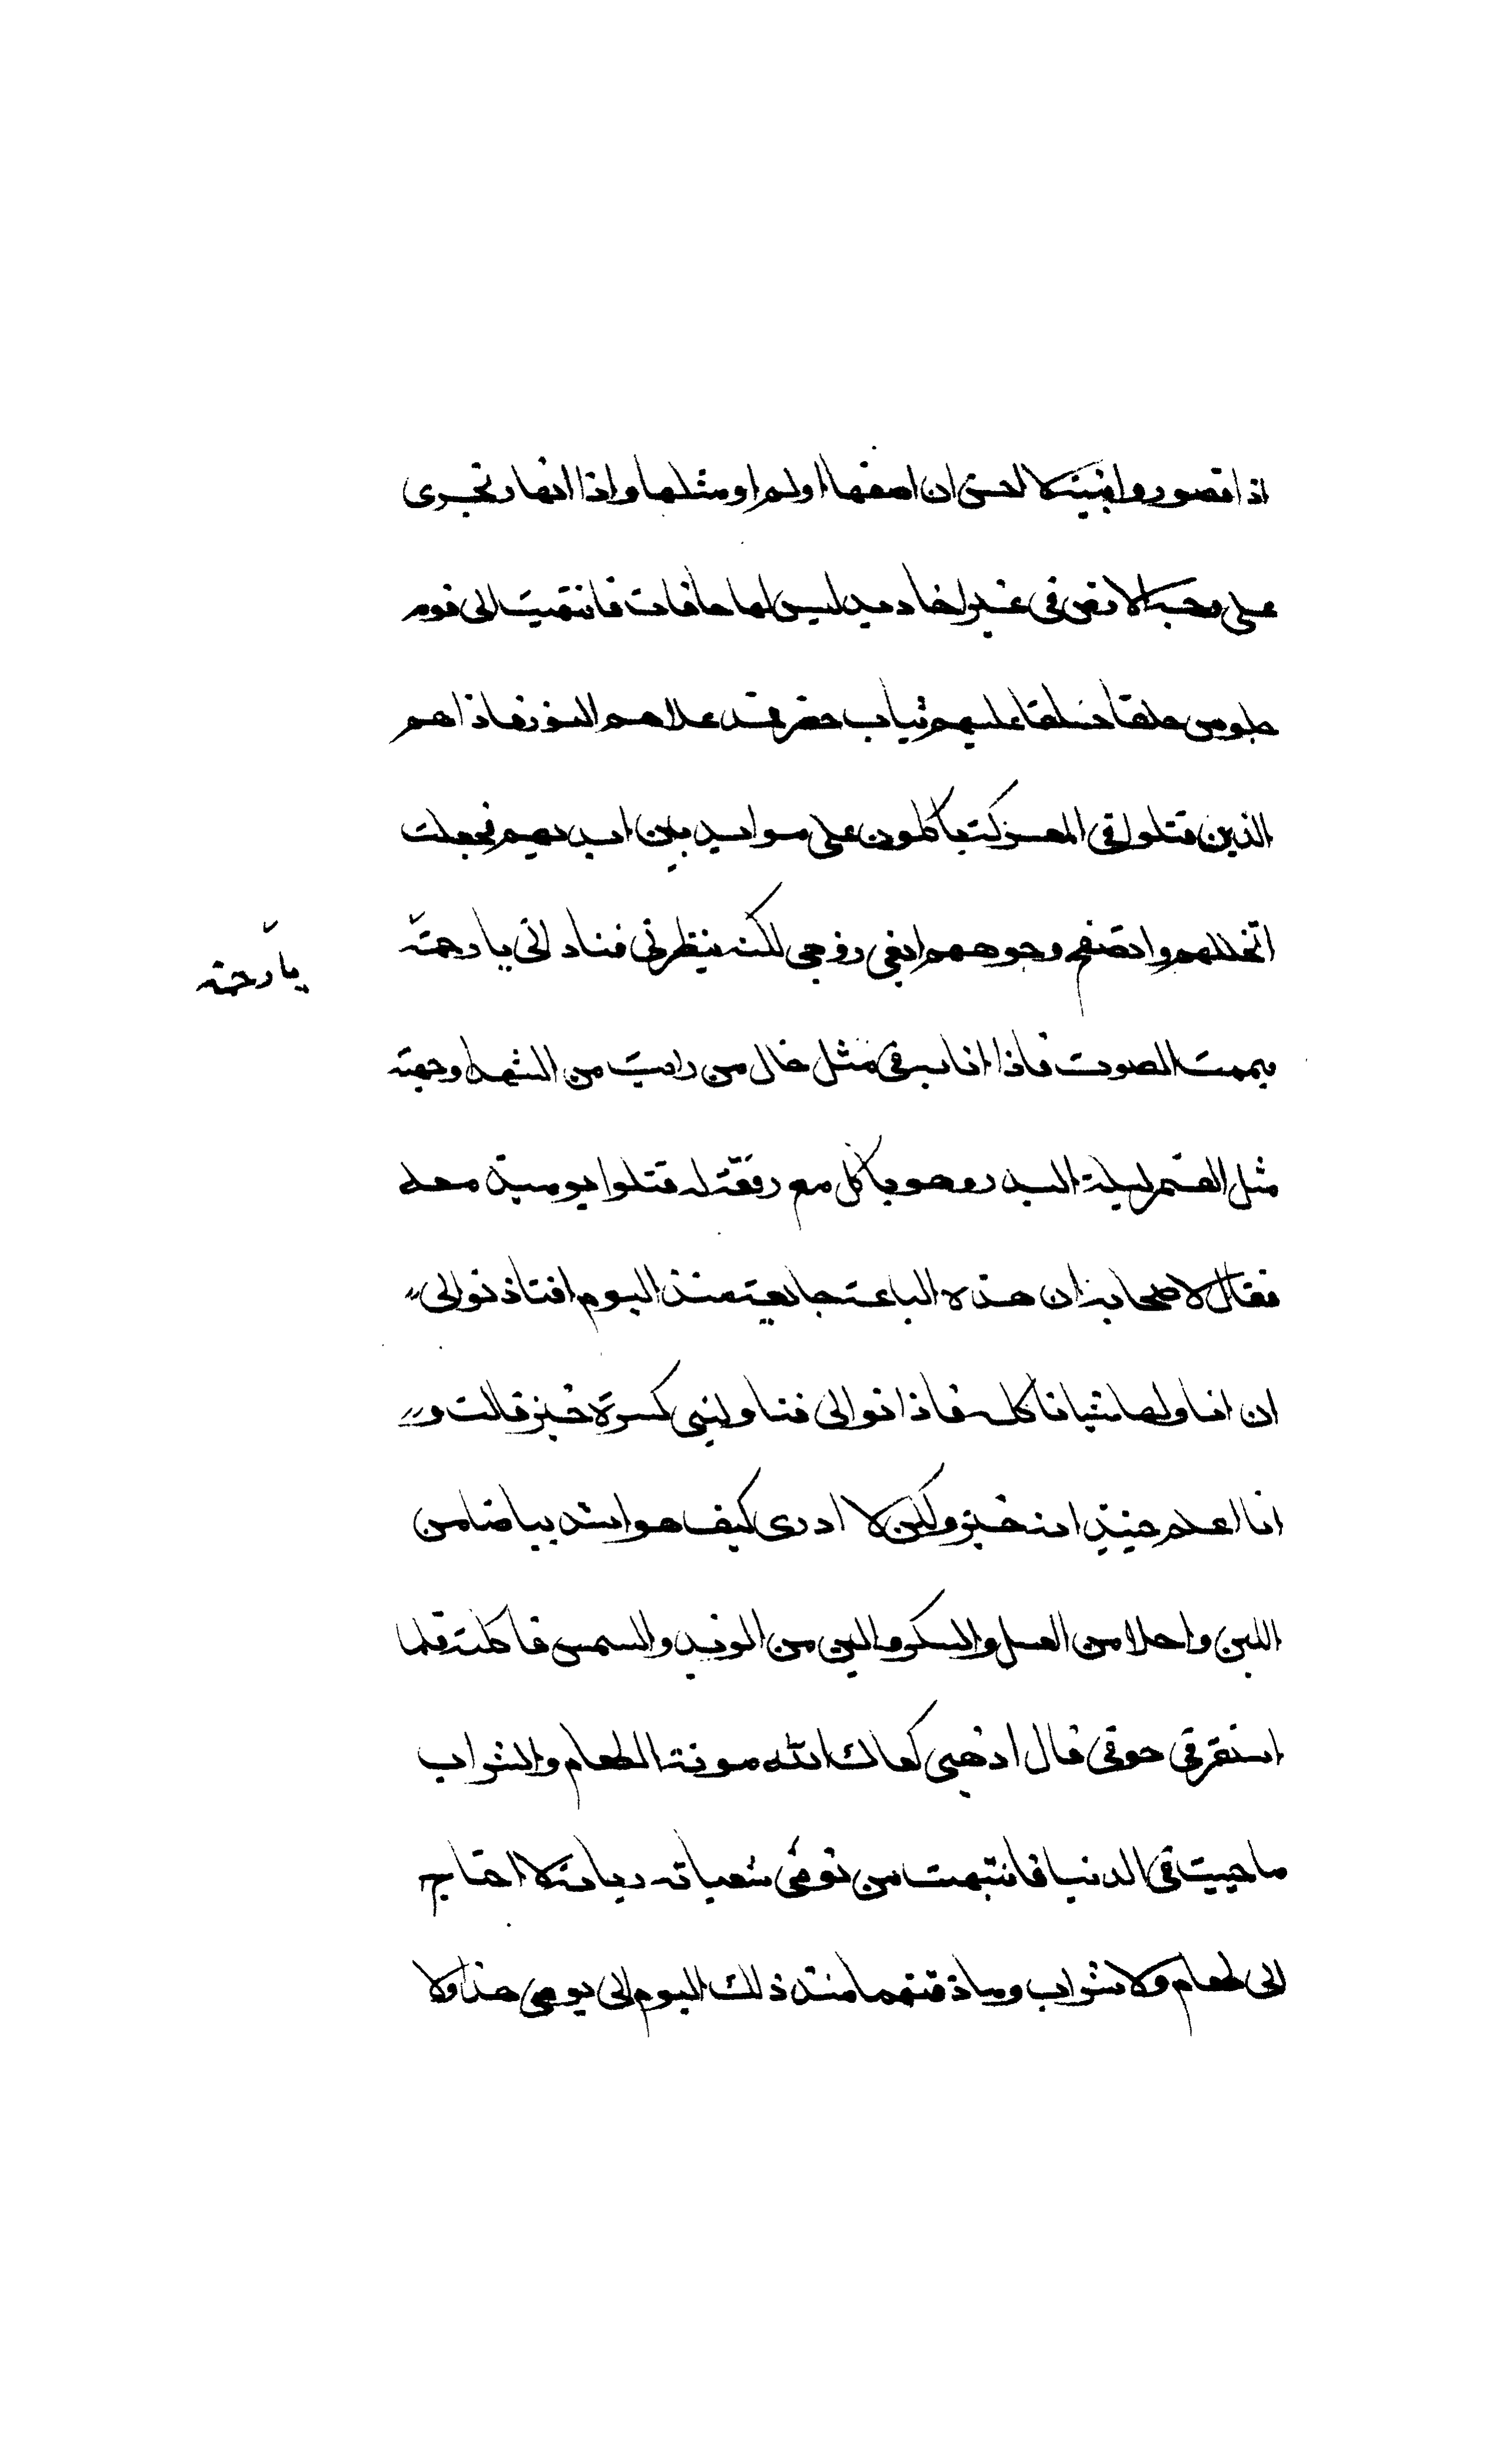 اذا قصور وابنية لا احسن ان اصفها ولم ار مثلها واذا انهار تجرى
على وجه الارض فى غير اخاديد ليس لها حافات فانتهيت الى قوم
جلوس حلقا حلقا عليهم ثياب خضر قد علاهم النور فاذا هم
الذين قتلوا فى المعركة يأكلون على موايد بين ايديهم فجعلت
اتخللهم واتصفح وجوههم ابغى زوجى لكنه ينظرنى فنادانى يا رحمة
يا رحمة
فيممت الصوت فاذا انا به فى مثل حال من رايت من الشهدا وجهه
مثل القمر ليلة البدر وهو ياكل مع رفقة له قتلوا يوميذ معه
فقال لاصحابه ان هذه البايسة جايعة منذ اليوم افتاذنوا لى
ان اناولها شيا تاكله فاذنوا لى فناولنى كسرة خبز قالت و
انا اعلم حينيذ انه خبز ولكن لا ادرى كيف هو اشد بياضا من
اللبن واحلا من العسل والسكر والين من الزبد والسمن فاكلته فلما
استقر فى جوفى قال اذهبى كفاك الله مونة الطعام والشراب
ما حييت فى الدنيا فانتبهت من نومى شبعانة ريانة لا احتاج
الى طعام ولا شراب وما ذقتهما منذ ذلك اليوم الى يومى هذا ولا